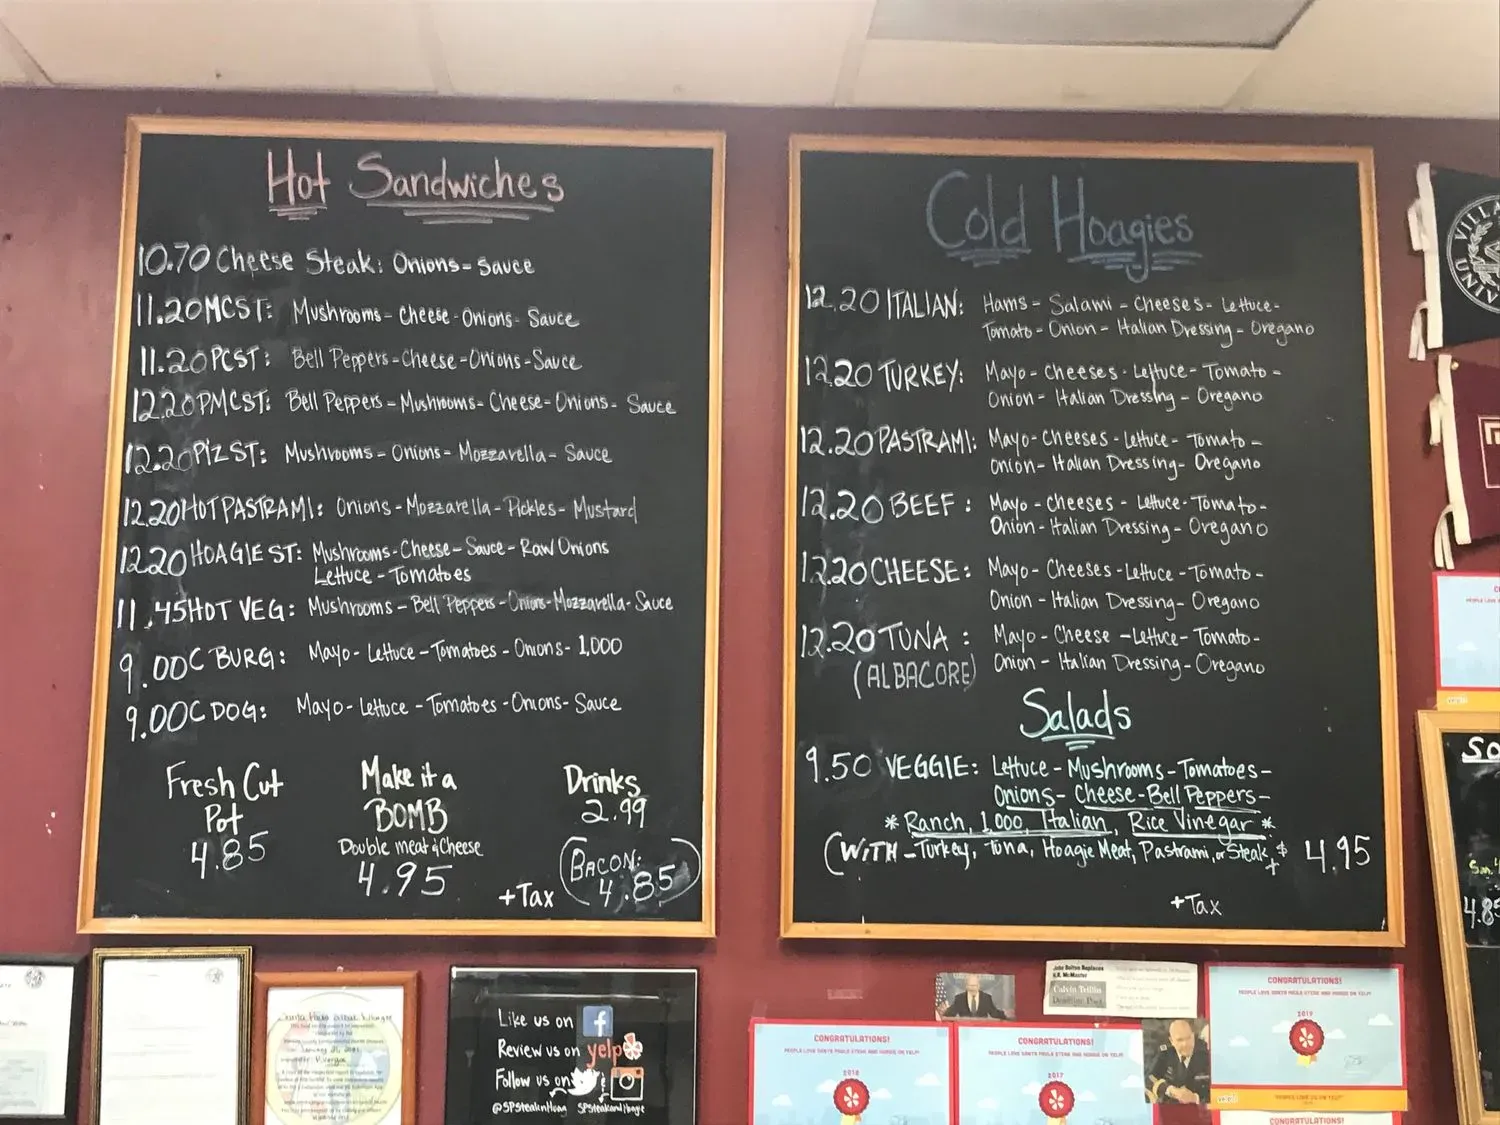 Hot Sandwiches
10.70 Cheese Steak: Onions - Sauce
11.20 MCST: Mushrooms - Cheese - Onions - Sauce
11.20 PCST: Bell Peppers - Cheese - Onions - Sauce
12.20 PMCST: Bell Peppers - Mushrooms - Cheese - Onions - Sauce
12.20 PIZ ST: Mushrooms - Onions - Mozzarella - Sauce
12.20 HOT PASTRAMI: Onions - Mozzarella - Pickles - Mustard
12.20 HOAGIE ST: Mushrooms - Cheese - Sauce - Raw Onions
Lettuce - Tomatoes
11.45 HOT VEG: Mushrooms - Bell Peppers - Onions - Mozzarella - Sauce
9.00 C BURG: Mayo - Lettuce - Tomatoes - Onions - 1,000
9.00 C DOG: Mayo - Lettuce - Tomatoes - Onions - Sauce
Fresh Cut
Pot
4.85
Make it a
BOMB
Double meat & Cheese
4.95
Drinks
2.99
BACON:
4.85
+ Tax
Cold Hoagies
12.20 ITALIAN: Hams - Salami - Cheeses - Lettuce -
Tomato - Onion - Italian Dressing - Oregano
12.20 TURKEY: Mayo - Cheeses - Lettuce - Tomato -
Onion - Italian Dressing - Oregano
12.20 PASTRAMI: Mayo - Cheeses - Lettuce - Tomato -
Onion - Italian Dressing - Oregano
12.20 BEEF: Mayo - Cheeses - Lettuce - Tomato -
Onion - Italian Dressing - Oregano
12.20 CHEESE: Mayo - Cheeses - Lettuce - Tomato -
Onion - Italian Dressing - Oregano
12.20 TUNA: Mayo - Cheese - Lettuce - Tomato -
(ALBACORE) Onion - Italian Dressing - Oregano
Salads
9.50 VEGGIE: Lettuce - Mushrooms - Tomatoes -
Onions - Cheese - Bell Peppers -
* Ranch, 1,000, Italian, Rice Vinegar *
(WITH - Turkey, Tuna, Hoagie Meat, Pastrami, or Steak $ + 4.95
+ Tax
Like us on
Review us on yelp
Follow us on
John Bolton Replaces
H.R. McMaster
CONGRATULATIONS!
2018
CONGRATULATIONS!
2017
CONGRATULATIONS!
2019